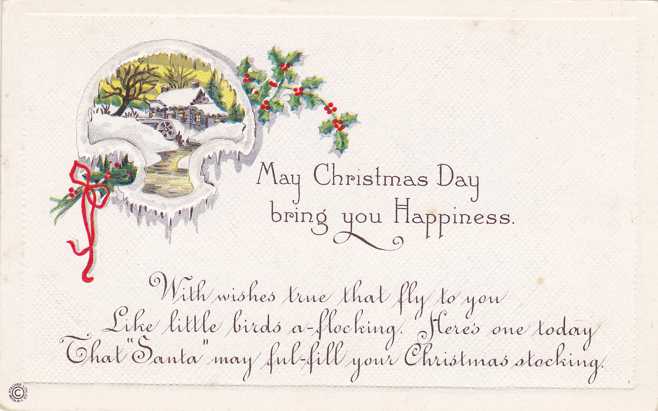 May Christmas Day
bring you Happiness.
With wishes true that fly to you
Like little birds a-flocking. Here's one today
That "Santa" may ful-fill your Christmas stocking.
©